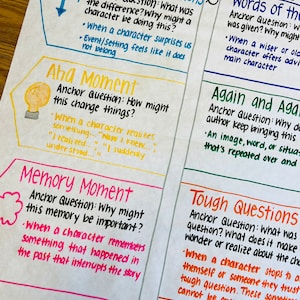 Anchor Question: What was
the difference? Why might a
character be doing this?
• When a character surprises us
• Event/Setting feels like it does
not belong
Aha Moment
Anchor Question: How might
this change things?
• When a character realizes
something... "Now I know..."
"I realized..." "I suddenly
understood..."
Memory Moment
Anchor Question: Why might
this memory be important?
• When a character remembers
something that happened in
the past that interrupts the story
Words of th
Anchor Question: What
was given? Why might
• When a wiser or o
offers adv
main character
Again and Aga
Anchor Question: Why
author keep bringing this
• An image, word, or situa
that's repeated over and
Tough Questions
Anchor Question: What was
question? What does it make
wonder or realize about the cha
• When a character stops to a
themself or someone they trust
tough question. These
cannot be